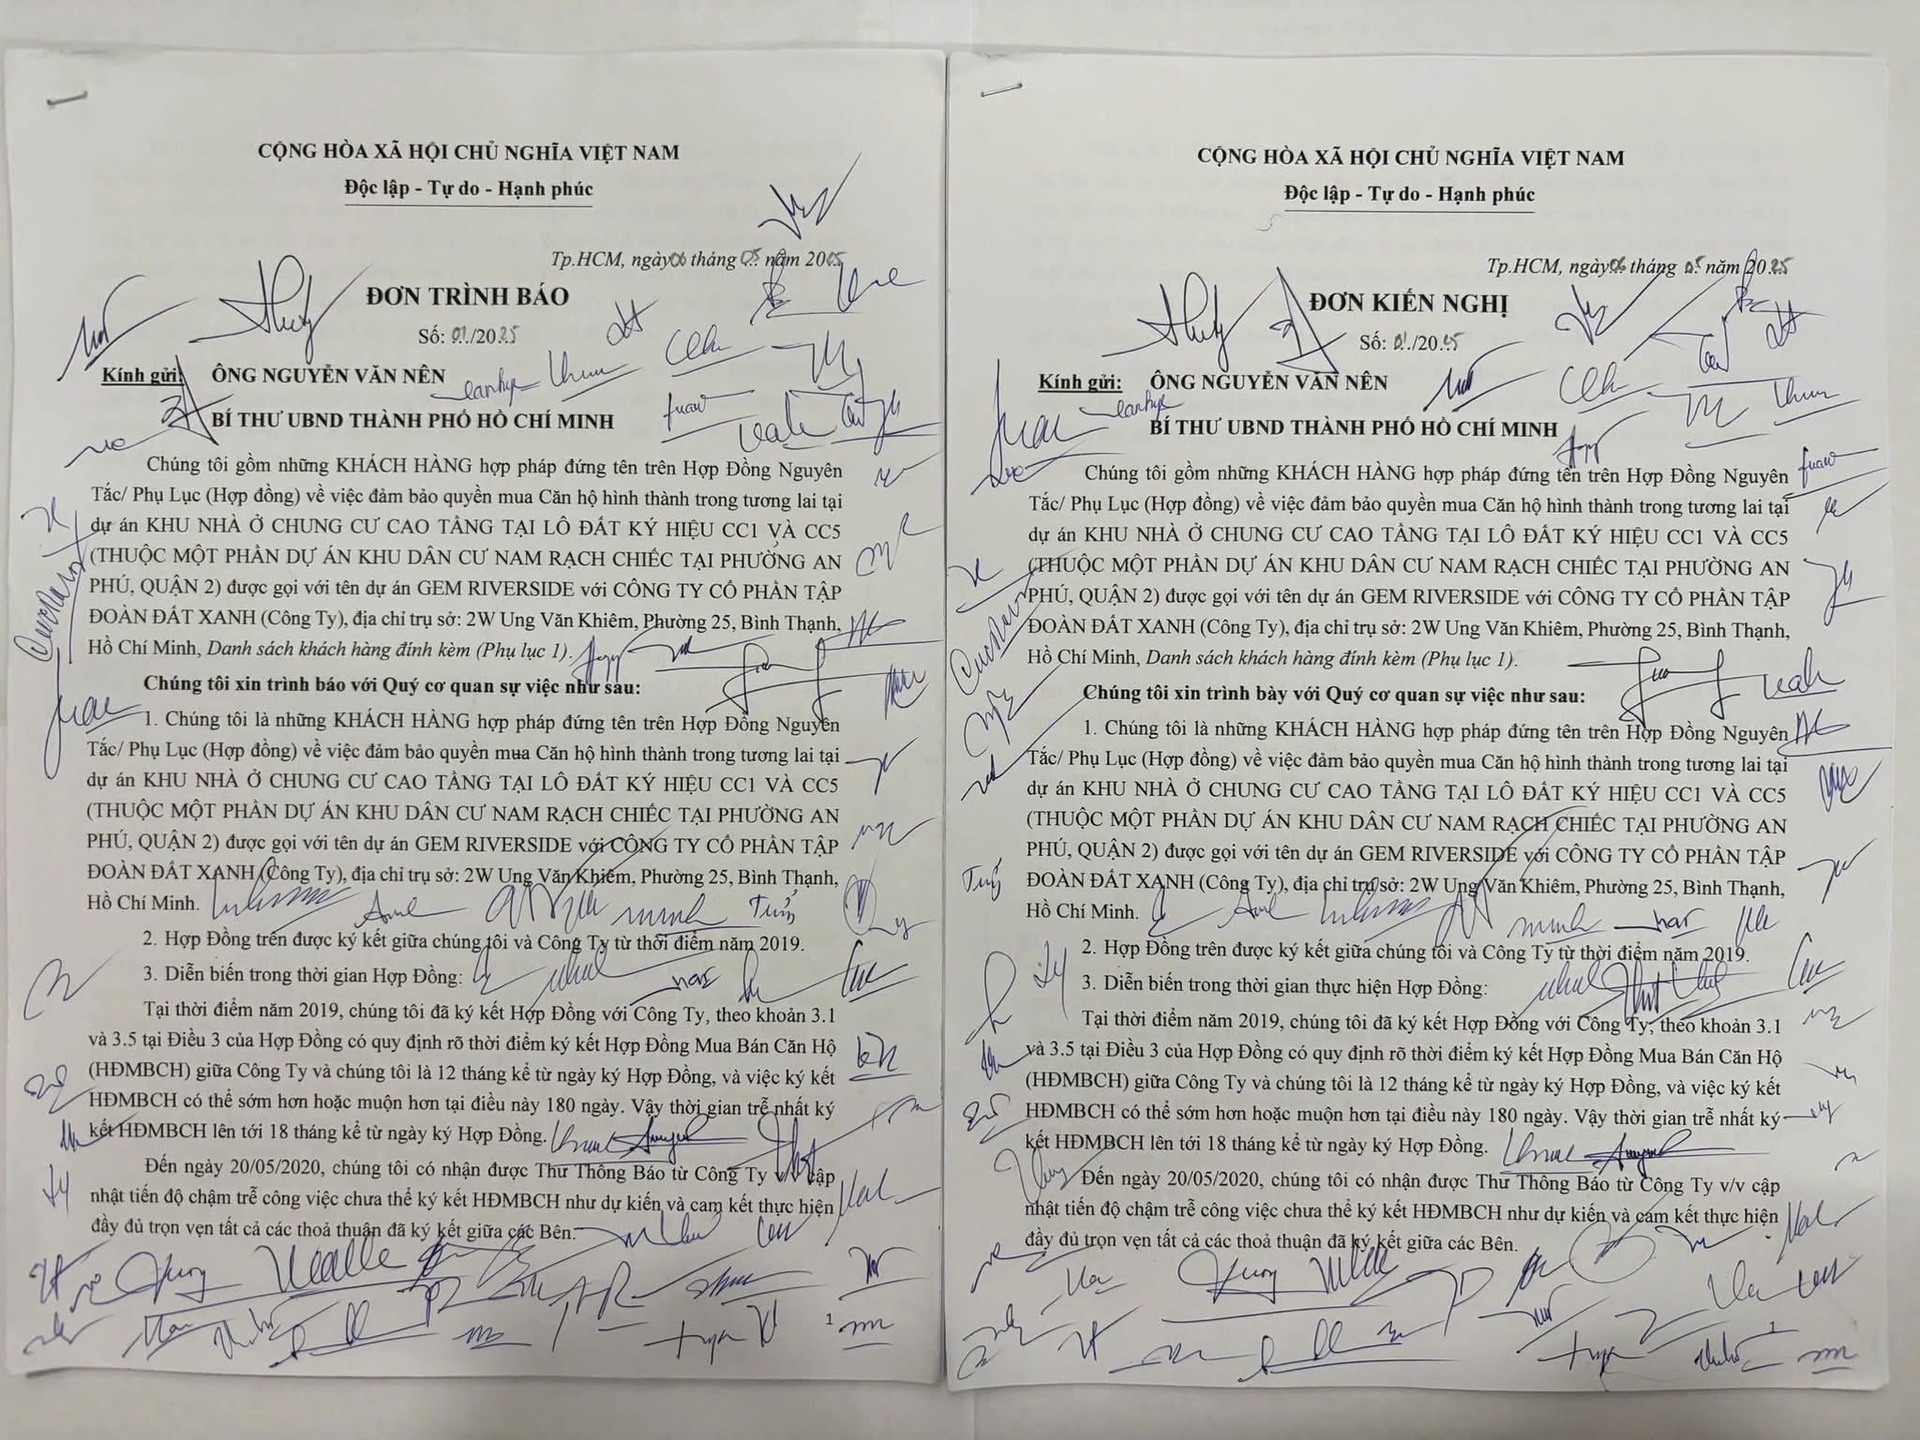 CỘNG HÒA XÃ HỘI CHỦ NGHĨA VIỆT NAM
Độc lập - Tự do - Hạnh phúc
Tp.HCM, ngày 06 tháng 05 năm 2025
ĐƠN TRÌNH BÁO
Số: 01/2025
Kính gửi: ÔNG NGUYỄN VĂN NÊN
BÍ THƯ UBND THÀNH PHỐ HỒ CHÍ MINH
Chúng tôi gồm những KHÁCH HÀNG hợp pháp đứng tên trên Hợp Đồng Nguyên
Tắc/ Phụ Lục (Hợp đồng) về việc đảm bảo quyền mua Căn hộ hình thành trong tương lai tại
dự án KHU NHÀ Ở CHUNG CƯ CAO TẦNG TẠI LÔ ĐẤT KÝ HIỆU CC1 VÀ CC5
(THUỘC MỘT PHẦN DỰ ÁN KHU DÂN CƯ NAM RẠCH CHIẾC TẠI PHƯỜNG AN
PHÚ, QUẬN 2) được gọi với tên dự án GEM RIVERSIDE với CÔNG TY CỔ PHẦN TẬP
ĐOÀN ĐẤT XANH (Công Ty), địa chỉ trụ sở: 2W Ung Văn Khiêm, Phường 25, Bình Thạnh,
Hồ Chí Minh, Danh sách khách hàng đính kèm (Phụ lục 1).
Chúng tôi xin trình báo với Quý cơ quan sự việc như sau:
1. Chúng tôi là những KHÁCH HÀNG hợp pháp đứng tên trên Hợp Đồng Nguyên
Tắc/ Phụ Lục (Hợp đồng) về việc đảm bảo quyền mua Căn hộ hình thành trong tương lai tại
dự án KHU NHÀ Ở CHUNG CƯ CAO TẦNG TẠI LÔ ĐẤT KÝ HIỆU CC1 VÀ CC5
(THUỘC MỘT PHẦN DỰ ÁN KHU DÂN CƯ NAM RẠCH CHIẾC TẠI PHƯỜNG AN
PHÚ, QUẬN 2) được gọi với tên dự án GEM RIVERSIDE với CÔNG TY CỔ PHẦN TẬP
ĐOÀN ĐẤT XANH (Công Ty), địa chỉ trụ sở: 2W Ung Văn Khiêm, Phường 25, Bình Thạnh,
Hồ Chí Minh.
2. Hợp Đồng trên được ký kết giữa chúng tôi và Công Ty từ thời điểm năm 2019.
3. Diễn biến trong thời gian Hợp Đồng:
Tại thời điểm năm 2019, chúng tôi đã ký kết Hợp Đồng với Công Ty, theo khoản 3.1
và 3.5 tại Điều 3 của Hợp Đồng có quy định rõ thời điểm ký kết Hợp Đồng Mua Bán Căn Hộ
(HĐMBCH) giữa Công Ty và chúng tôi là 12 tháng kể từ ngày ký Hợp Đồng, và việc ký kết
HĐMBCH có thể sớm hơn hoặc muộn hơn tại điều này 180 ngày. Vậy thời gian trễ nhất ký
kết HĐMBCH lên tới 18 tháng kể từ ngày ký Hợp Đồng.
Đến ngày 20/05/2020, chúng tôi có nhận được Thư Thông Báo từ Công Ty v/v cập
nhật tiến độ chậm trễ công việc chưa thể ký kết HĐMBCH như dự kiến và cam kết thực hiện
đầy đủ trọn vẹn tất cả các thoả thuận đã ký kết giữa các Bên.
1
CỘNG HÒA XÃ HỘI CHỦ NGHĨA VIỆT NAM
Độc lập - Tự do - Hạnh phúc
Tp.HCM, ngày 06 tháng 05 năm 2025
ĐƠN KIẾN NGHỊ
Số: 01/2025
Kính gửi: ÔNG NGUYỄN VĂN NÊN
BÍ THƯ UBND THÀNH PHỐ HỒ CHÍ MINH
Chúng tôi gồm những KHÁCH HÀNG hợp pháp đứng tên trên Hợp Đồng Nguyên
Tắc/ Phụ Lục (Hợp đồng) về việc đảm bảo quyền mua Căn hộ hình thành trong tương lai tại
dự án KHU NHÀ Ở CHUNG CƯ CAO TẦNG TẠI LÔ ĐẤT KÝ HIỆU CC1 VÀ CC5
(THUỘC MỘT PHẦN DỰ ÁN KHU DÂN CƯ NAM RẠCH CHIẾC TẠI PHƯỜNG AN
PHÚ, QUẬN 2) được gọi với tên dự án GEM RIVERSIDE với CÔNG TY CỔ PHẦN TẬP
ĐOÀN ĐẤT XANH (Công Ty), địa chỉ trụ sở: 2W Ung Văn Khiêm, Phường 25, Bình Thạnh,
Hồ Chí Minh, Danh sách khách hàng đính kèm (Phụ lục 1).
Chúng tôi xin trình bày với Quý cơ quan sự việc như sau:
1. Chúng tôi là những KHÁCH HÀNG hợp pháp đứng tên trên Hợp Đồng Nguyên
Tắc/ Phụ Lục (Hợp đồng) về việc đảm bảo quyền mua Căn hộ hình thành trong tương lai tại
dự án KHU NHÀ Ở CHUNG CƯ CAO TẦNG TẠI LÔ ĐẤT KÝ HIỆU CC1 VÀ CC5
(THUỘC MỘT PHẦN DỰ ÁN KHU DÂN CƯ NAM RẠCH CHIẾC TẠI PHƯỜNG AN
PHÚ, QUẬN 2) được gọi với tên dự án GEM RIVERSIDE với CÔNG TY CỔ PHẦN TẬP
ĐOÀN ĐẤT XANH (Công Ty), địa chỉ trụ sở: 2W Ung Văn Khiêm, Phường 25, Bình Thạnh,
Hồ Chí Minh.
2. Hợp Đồng trên được ký kết giữa chúng tôi và Công Ty từ thời điểm năm 2019.
3. Diễn biến trong thời gian thực hiện Hợp Đồng:
Tại thời điểm năm 2019, chúng tôi đã ký kết Hợp Đồng với Công Ty, theo khoản 3.1
và 3.5 tại Điều 3 của Hợp Đồng có quy định rõ thời điểm ký kết Hợp Đồng Mua Bán Căn Hộ
(HĐMBCH) giữa Công Ty và chúng tôi là 12 tháng kể từ ngày ký Hợp Đồng, và việc ký kết
HĐMBCH có thể sớm hơn hoặc muộn hơn tại điều này 180 ngày. Vậy thời gian trễ nhất ký
kết HĐMBCH lên tới 18 tháng kể từ ngày ký Hợp Đồng.
Đến ngày 20/05/2020, chúng tôi có nhận được Thư Thông Báo từ Công Ty v/v cập
nhật tiến độ chậm trễ công việc chưa thể ký kết HĐMBCH như dự kiến và cam kết thực hiện
đầy đủ trọn vẹn tất cả các thoả thuận đã ký kết giữa các Bên.
1